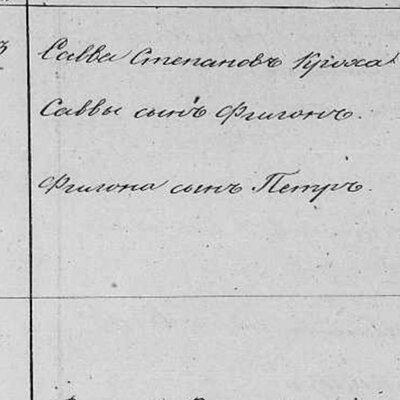 Савва Степановъ Кроха
Саввы сынъ Фришонъ.
Фришона сынъ Петръ.